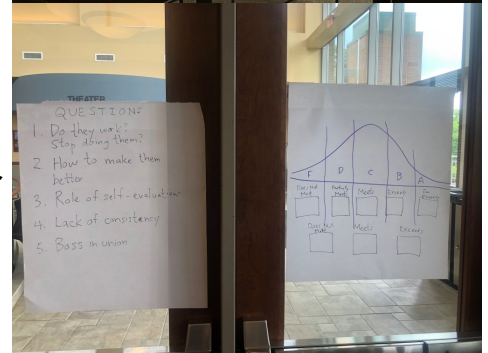 THEATER
QUESTIONS
1. Do they work?
Stop doing them?
2 How to make them
better
3. Role of self-evaluation
4. Lack of consistency
5. Boss in union
F D C B A
Does Not
Meet
Partially
Meet
Meets
Exceeds
Does Not
Meet
Meets
Exceeds